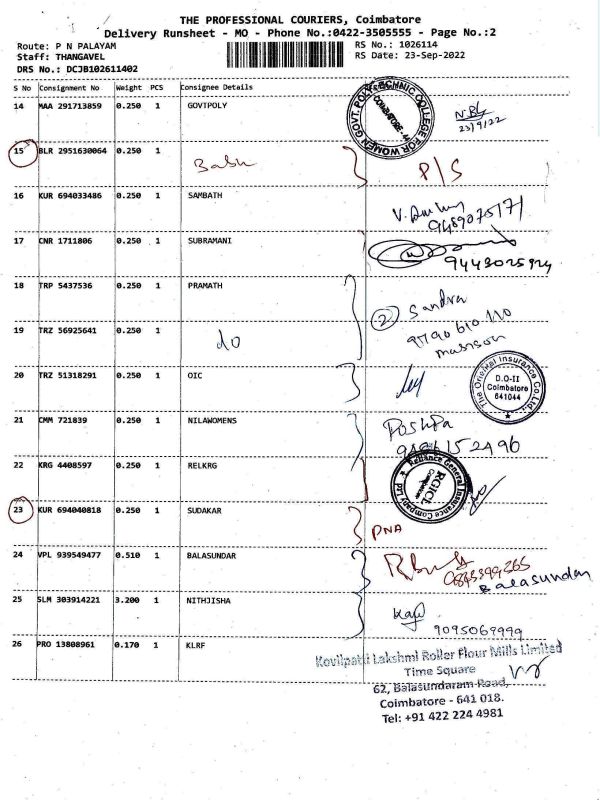 THE PROFESSIONAL COURIERS, Coimbatore
Delivery Runsheet - MO - Phone No.:0422-3505555 - Page No.:2
Route: P N PALAYAM
RS No.: 1026114
Staff: THANGAVEL
RS Date: 23-Sep-2022
DRS No.: DCJB102611402
S No Consignment No Weight PCS Consignee Details
14 MAA 291713859 0.250 1 GOVTPOLY
GOVT. POLYTECHNIC COLLEGE FOR WOMEN
COIMBATORE-44
23/9/22
15 BLR 2951630064 0.250 1
Babu
P/S
16 KUR 694033486 0.250 1 SAMBATH
9489075171
17 CNR 1711806 0.250 1 SUBRAMANI
18 TRP 5437536 0.250 1 PRAMATH
2 Sandra
19 TRZ 56925641 0.250 1 do
9790610110
20 TRZ 51318291 0.250 1 OIC
The Oriental Insurance Co.Ltd.
D.O-II
Coimbatore
641044
21 CMM 721839 0.250 1 NILAWOMENS
Poshpa
22 KRG 4408597 0.250 1 RELKRG
Reliance General Insurance Company Ltd
RGICL
23 KUR 694040818 0.250 1 SUDAKAR
PNA
24 VPL 939549477 0.510 1 BALASUNDAR
Balasundar
25 SLM 303914221 3.200 1 NITHJISHA
9095069999
26 PRO 13808961 0.170 1 KLRF
Kovilpatti Lakshmi Roller Flour Mills Limited
Time Square
62, Balasundaram Road,
Coimbatore - 641 018.
Tel: +91 422 224 4981